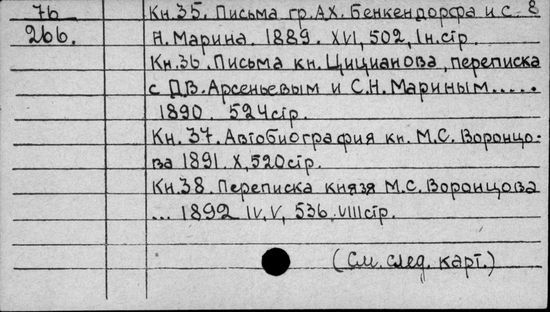 76
266.
Кн.35. Письма гр. А.Х. Бенкендорфа и С. 8
Н. Марина. 1889. XVI, 502, Iн. стр.
Кн.36. Письма кн. Цицианова, переписка
с Д.В. Арсеньевым и С.Н. Мариным.....
1890. 524 стр.
Кн. 37. Автобиография кн. М.С. Воронцо-
ва 1891. X, 520 стр.
Кн.38. Переписка князя М.С. Воронцова
... 1892 IV, V, 536. VIII стр.
(См. след. карт.)